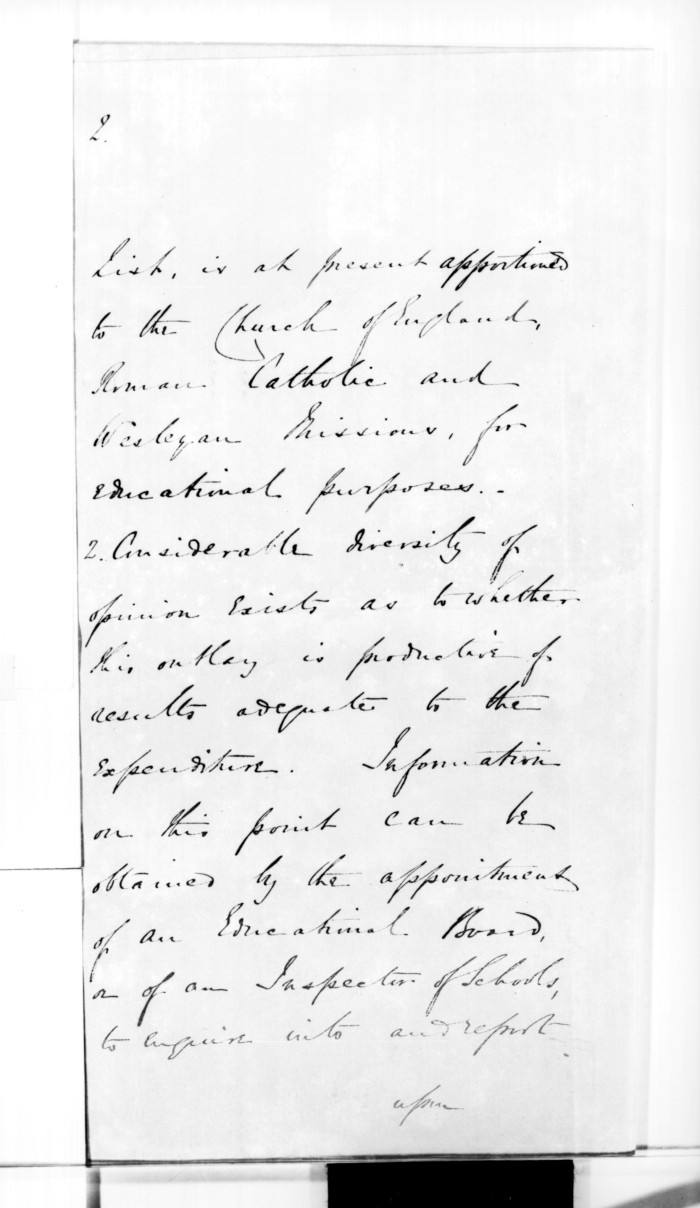 2.
List, is at present apportioned
to the Church of England,
Roman Catholic and
Wesleyan Missions, for
educational purposes. -
2. Considerable diversity of
opinion exists as to whether
this outlay is productive of
results adequate to the
expenditure. Information
on this point can be
obtained by the appointment
of an Educational Board,
or of an Inspector of Schools,
to enquire into and report
upon